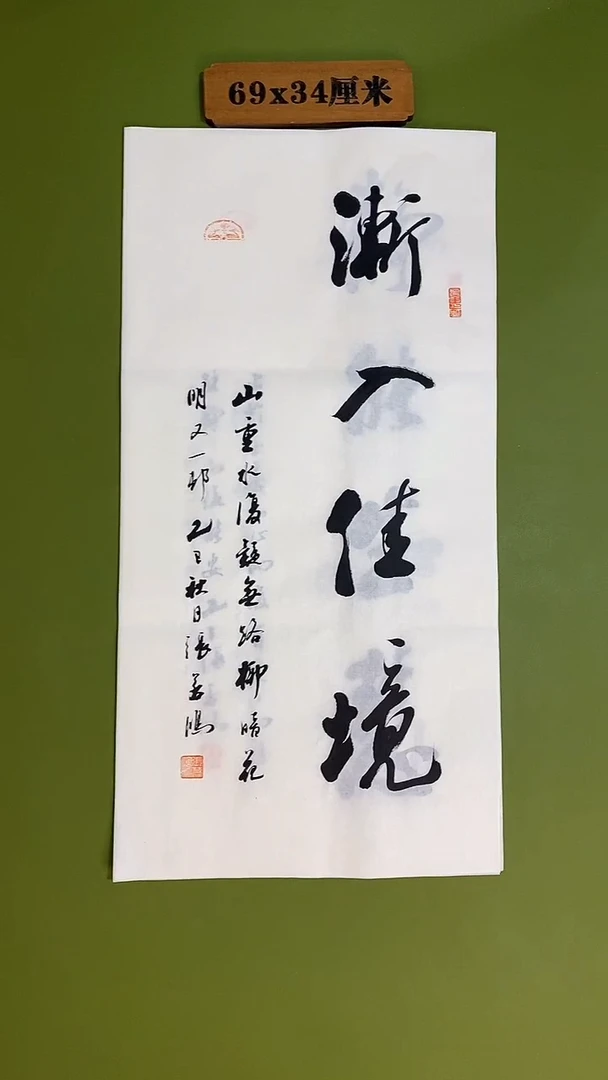 69x34厘米
漸入佳境
山重水復疑無路柳暗花
明又一邨 乙巳秋日張鴻